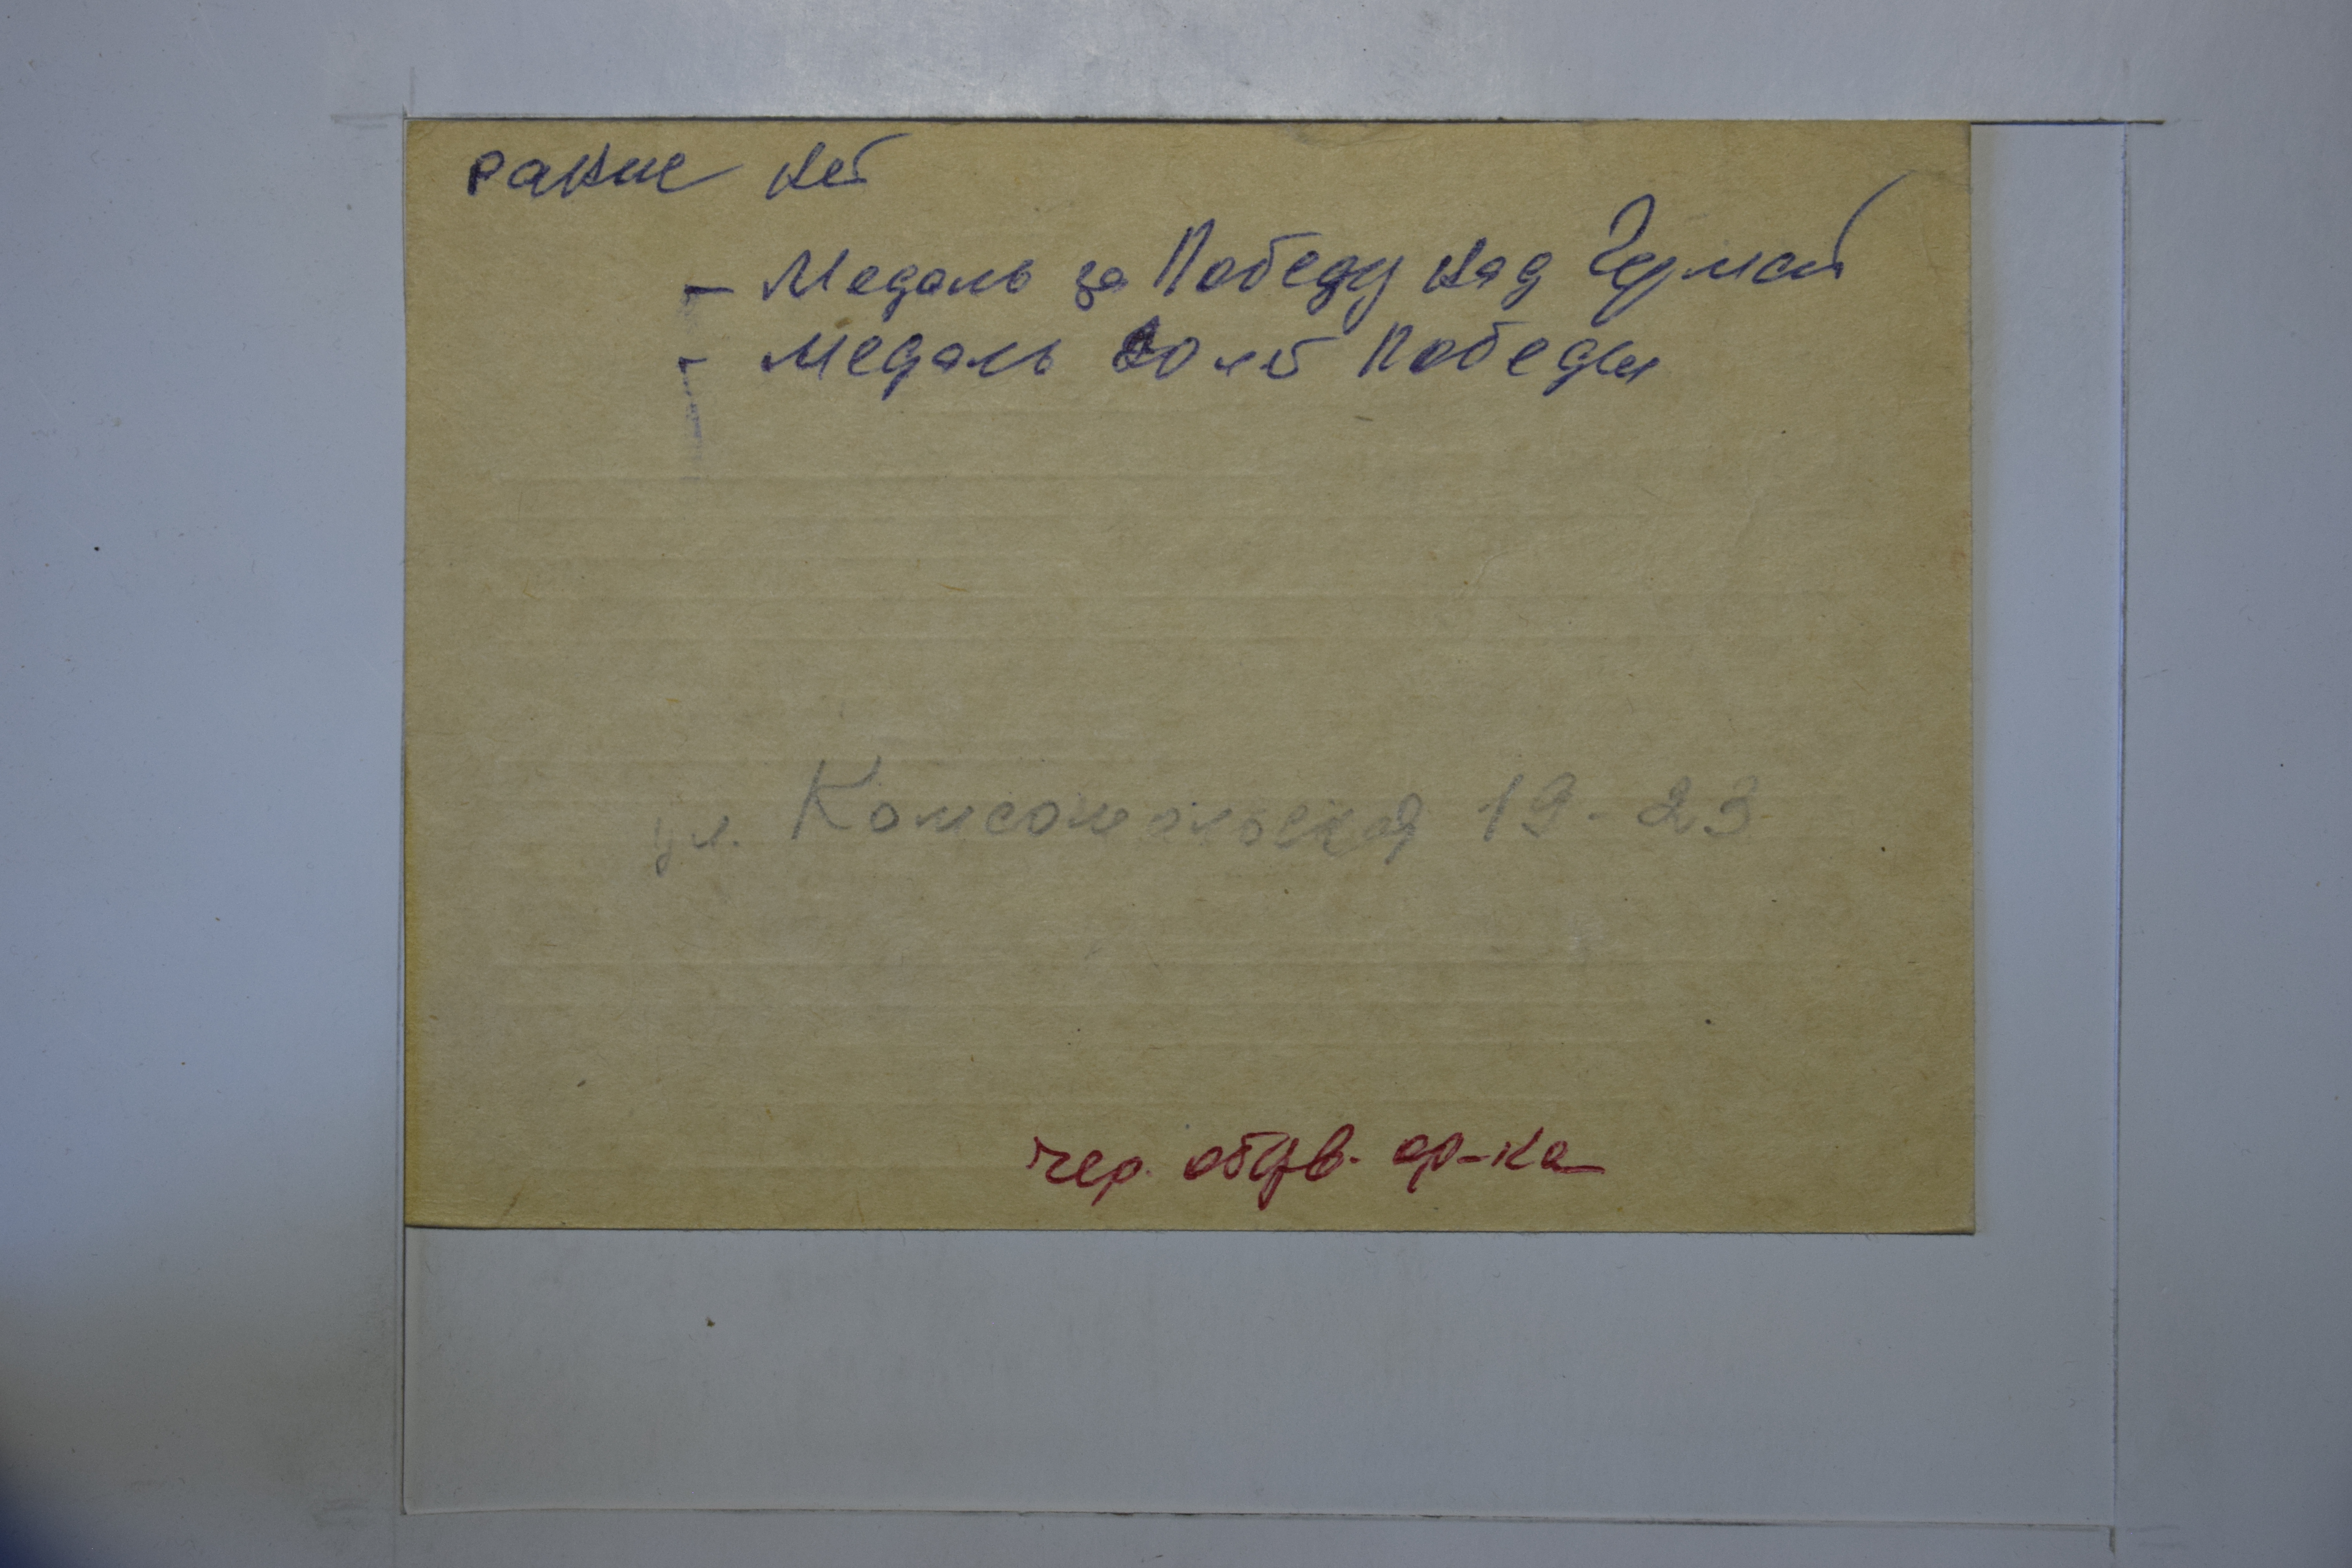 ранне нет
- Медаль за Победу над Герман
- Медаль 20 лет Победы
ул. Комсомольская 19-23
чер. ар-ка